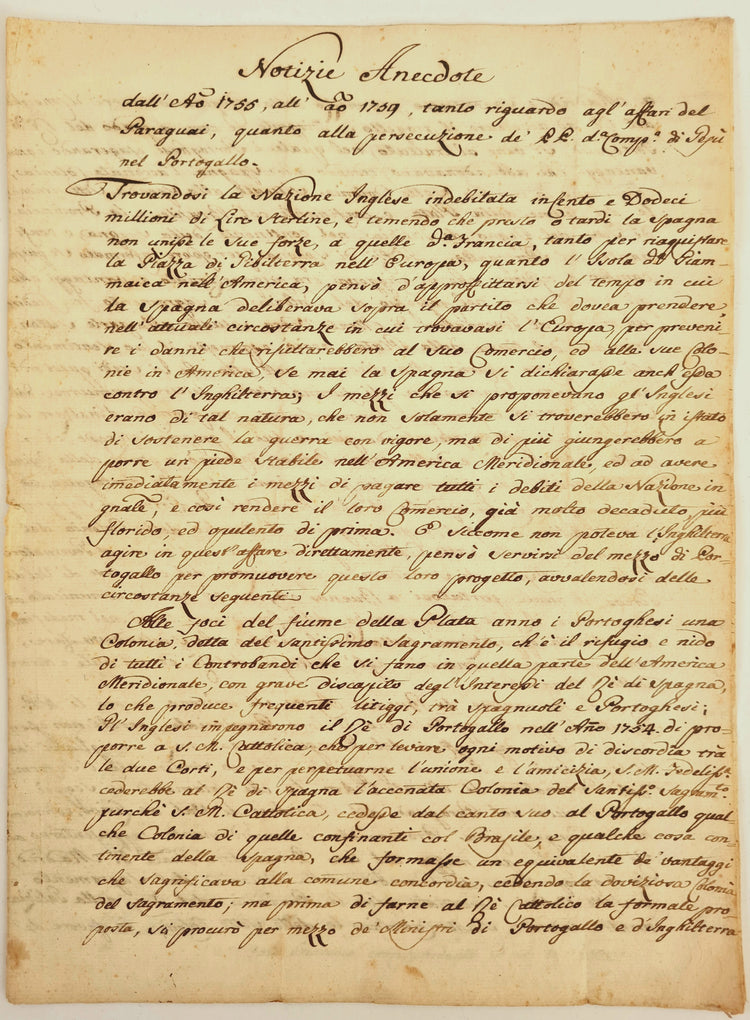 Notizie Anecdote
dall' Año 1755, all' año 1759, tanto riguardo agl' affari del
Paraguai, quanto alla persecuzione de' PP. d.ª Comp.ª di Gesù
nel Portogallo.
Trovandosi la Nazione Inglese indebitata in Cento e Dodeci
millioni di Lire Sterline, e temendo che presto o tardi la Spagna
non unisse le sue forze, a quelle d.ª Francia, tanto per riaquistare
la Piazza di Gibilterra nell' Europa, quanto l' Isola di Giam-
maica nell' America, pensò d'approfittarsi del tempo in cui
la Spagna deliberava sopra il partito che dovea prendere,
nell' attuali circostanze in cui trovavasi l' Europa, per preveni-
re i danni che risultarebbero al suo Comercio, ed alle sue Colo-
nie in America, se mai la Spagna si dichiarasse anch' essa
contro l' Inghilterra; I mezzi che si proponevano gl' Inglesi
erano di tal natura, che non solamente si troverebbero in istato
di sostenere la guerra con vigore, ma di più giungerebbero a
porre un piede stabile nell' America Meridionale, ed ad avere
imediatamente i mezzi di pagare tutti i debiti della Nazione in
gnale, e così rendere il loro Comercio, già molto decaduto, più
florido, ed opulento di prima. E siccome non poteva l' Inghilterra
agire in quest' affare direttamente, pensò servirsi del mezzo di Por-
togallo per promuovere questo loro progetto, avvalendosi delle
circostanze seguenti.
Alle foci del fiume della Plata anno i Portoghesi una
Colonia, detta del Santissimo Sagramento, ch' è il rifugio e nido
di tutti i Controbandi che si fano in quella parte dell' America
Meridionale, con grave discapito degl' Interessi del Rè di Spagna,
lo che produce frequenti litiggi, trà Spagnuoli e Portoghesi;
Gl' Inglesi impegnarono il Rè di Portogallo nell' Año 1754. di pro-
porre a S. M. Cattolica, che per levare ogni motivo di discordia trà
le due Corti, e per perpetuarne l'unione e l'amicizia, S. M. Fedeliss.ª
cederebbe al Rè di Spagna l'accenata Colonia del Santiss.º Sagram.to
purchè S. M. Cattolica, cedesse dal canto suo al Portogallo qual
che Colonia di quelle confinanti col Brasile, e qualche cosa con-
tinente della Spagna, che formasse un equivalente de' vantaggi
che sagrificava alla comune concordia, cedendo la doviziosa Colonia
del Sagramento; ma prima di farne al Rè Cattolico la formale pro-
posta, si procurò per mezzo de' Ministri di Portogallo e d' Inghilterra